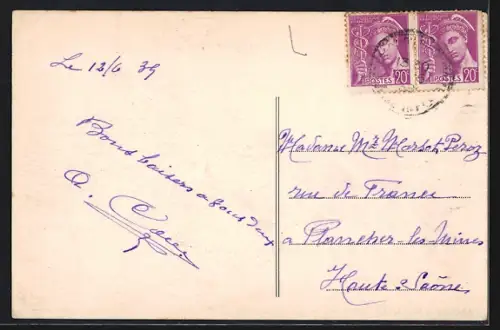 Le 12/6 39
Bons baisers a vous deux
POSTES 20
POSTES 20
Madame Mr Marsot Peroz
rue de France
a Plancher-les-Mines
Haute Saône